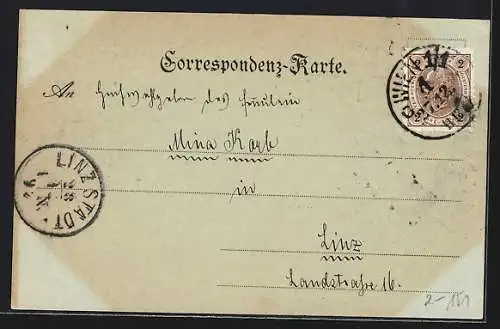 Correspondenz-Karte.
An Hochwohlgeboren des Fräulein
Mina Kork
in
Linz
Landstraße 16.
WIEN
2
LINZ STADT